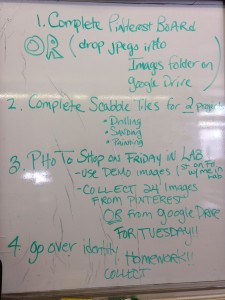 1. Complete Pinterest Board
OR (drop jpegs into
Images folder on
google Drive)
2. Complete Scabble Tiles for 2
• Drilling
• Sanding
• Painting
3. PHoTo Shop on FRiday in LAB
- use DEMO images
w/ me in
Lab
- COLLECT 24 Images
FROM PINTEREST
OR from google DRIVE
FOR TUESDAY!!
4. go over identity
HOMEWORK!!
COLLECT